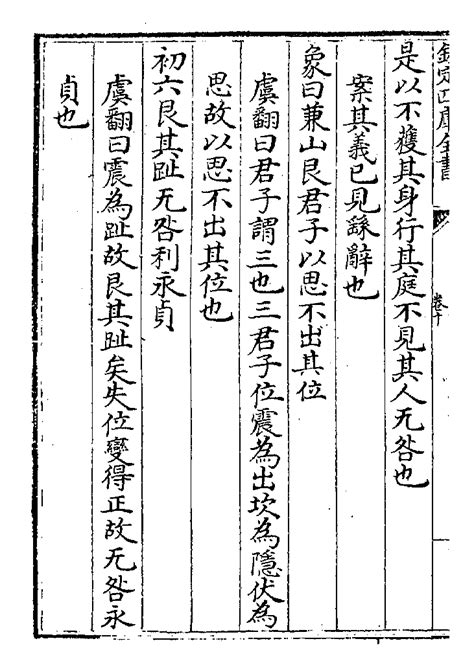 欽定四庫全書
卷十
是以不獲其身行其庭不見其人无咎也
案其義已見繇辭也
象曰兼山艮君子以思不出其位
虞翻曰君子謂三也三君子位震為出坎為隱伏為
思故以思不出其位也
初六艮其趾无咎利永貞
虞翻曰震為趾故艮其趾矣失位變得正故无咎永
貞也